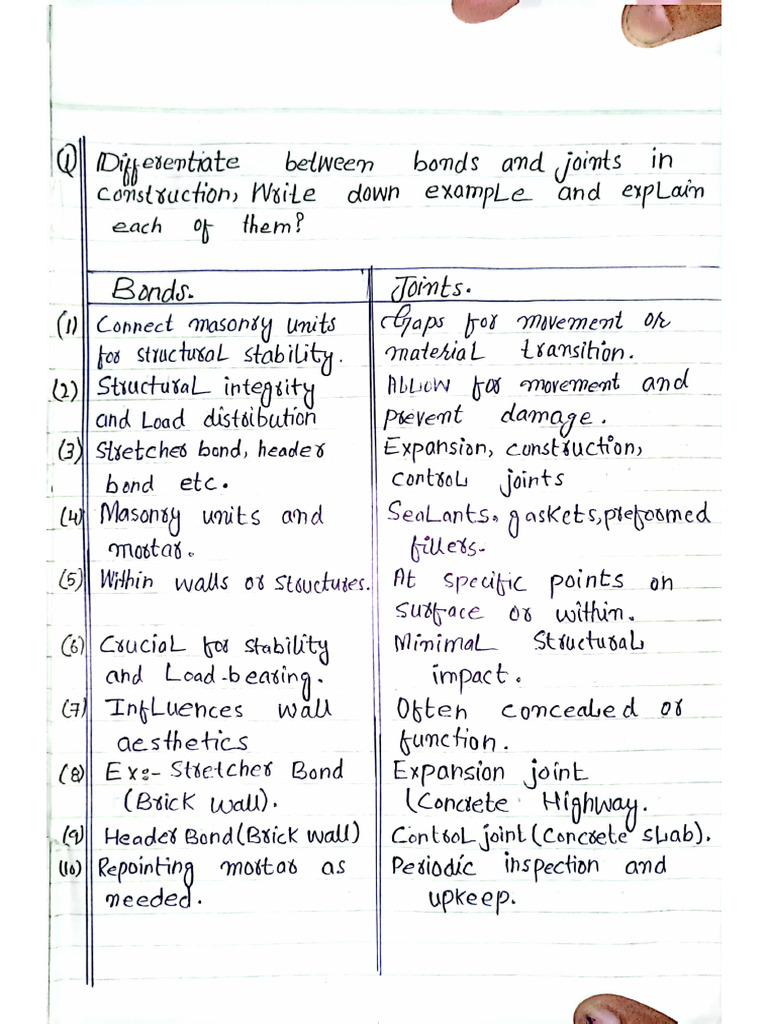 Q Differentiate between bonds and joints in
construction, Write down example and explain
each of them?
Bonds. Joints.
(1) Connect masonry units Gaps for movement or
for structural stability. material transition.
(2) Structural integrity Allow for movement and
and Load distribution prevent damage.
(3) Stretcher bond, header Expansion, construction,
bond etc. control joints
(4) Masonry units and Sealants, gaskets, preformed
mortar. fillers.
(5) Within walls or structures. At specific points on
surface or within.
(6) Crucial for stability Minimal Structural
and Load-bearing. impact.
(7) Influences wall Often concealed or
aesthetics function.
(8) Ex:- Stretcher Bond Expansion joint
(Brick wall). (Concrete Highway.
(9) Header Bond (Brick wall) Control joint (Concrete slab).
(10) Repointing mortar as Periodic inspection and
needed. upkeep.